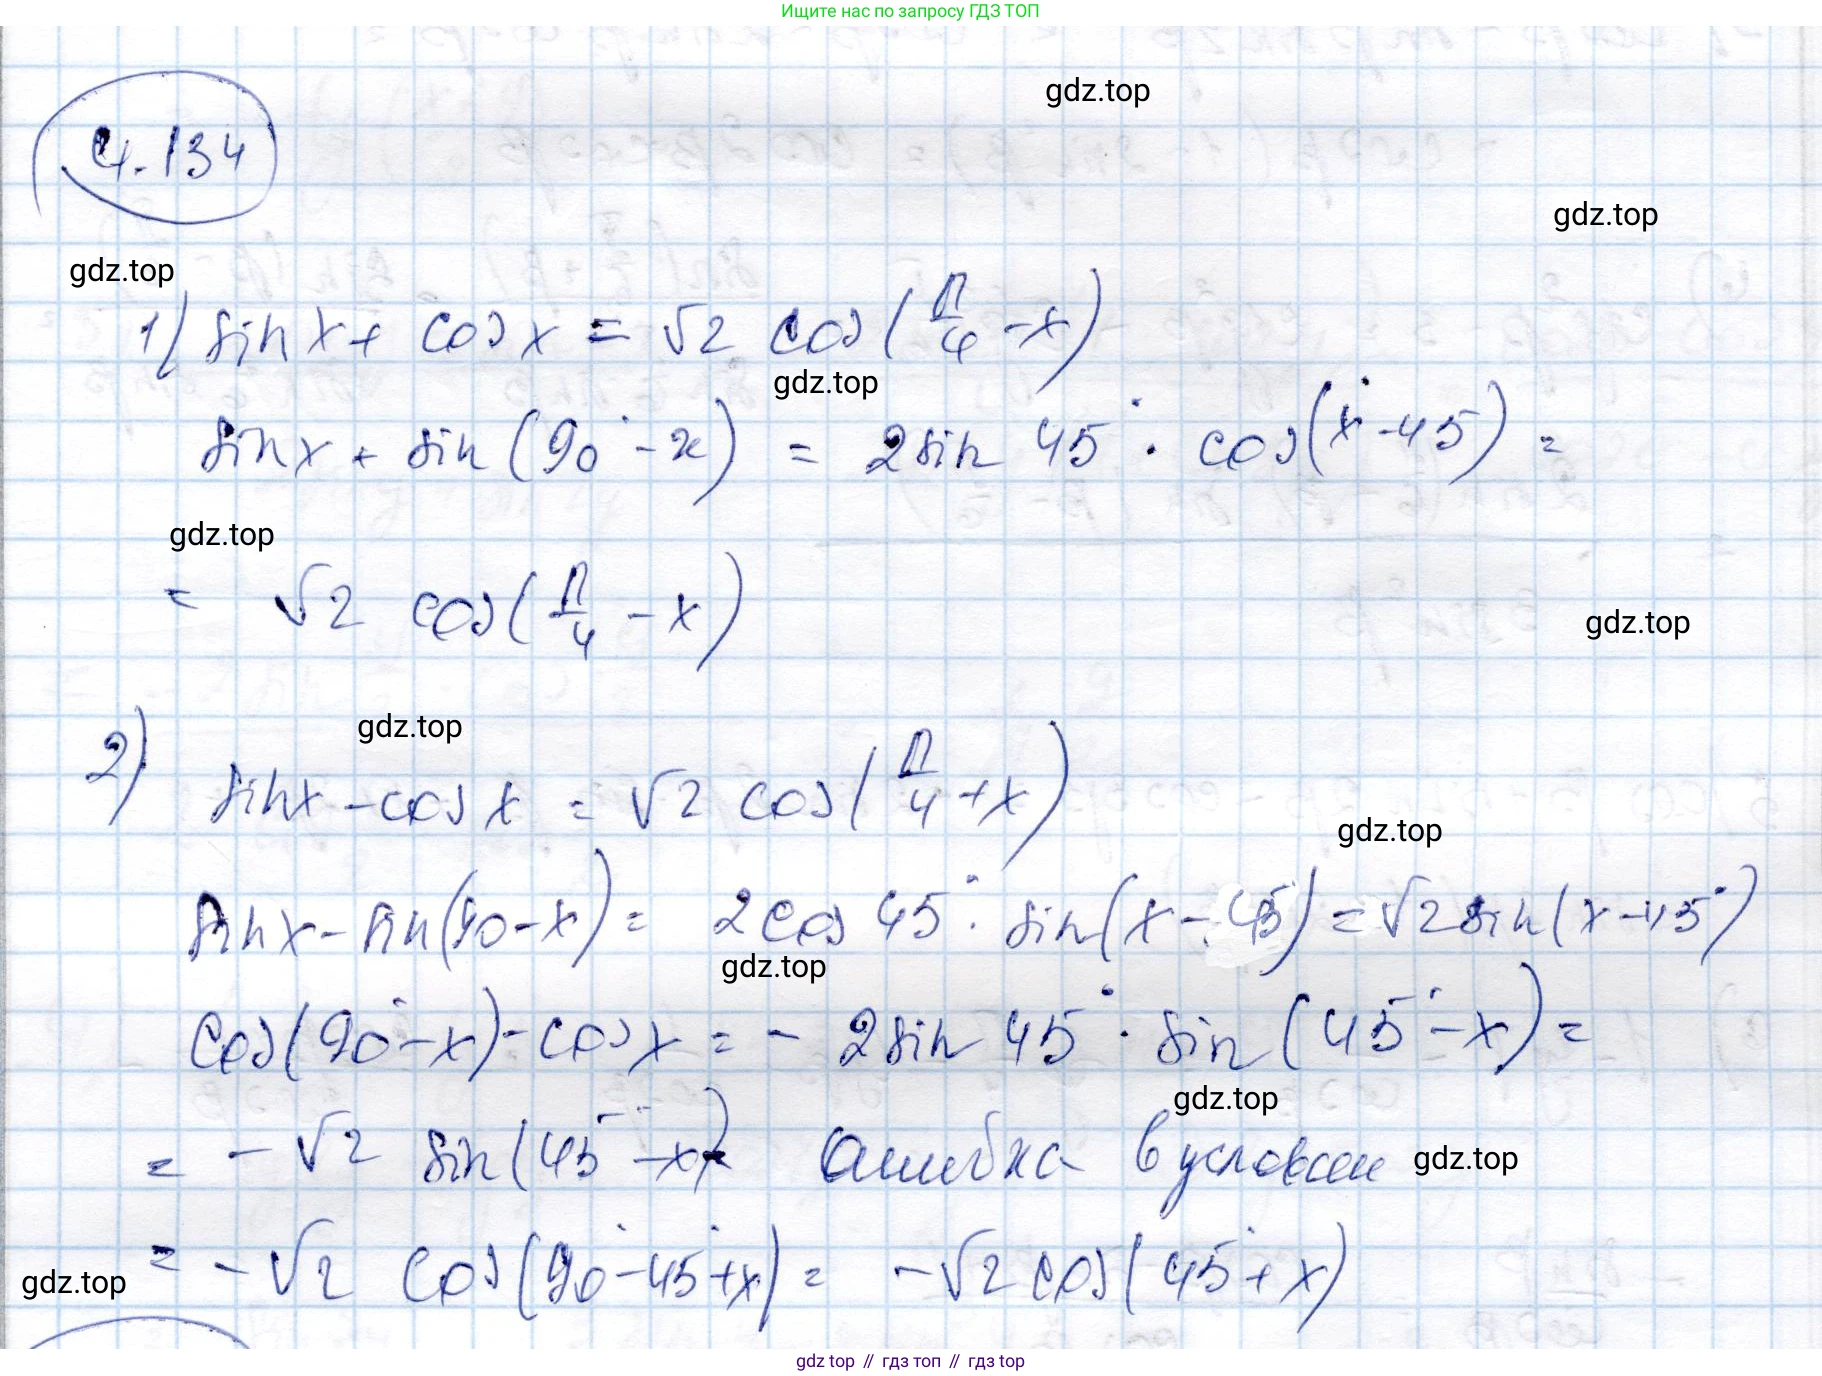 Ищите нас по запросу ГДЗ ТОП
gdz.top
4.134
gdz.top
gdz.top
1) sin x + cos x = √2 cos(π/4 - x)
gdz.top
sin x + sin(90° - x) = 2 sin 45° · cos(x - 45°) =
gdz.top
= √2 cos(π/4 - x)
gdz.top
gdz.top
2) sin x - cos x = √2 cos(π/4 + x)
gdz.top
sin x - sin(90 - x) = 2 cos 45° · sin(x - 45) = √2 sin(x - 45°)
gdz.top
cos(90° - x) - cos x = - 2 sin 45° · sin(45° - x) =
gdz.top
= - √2 sin(45° - x) ошибка в условии
gdz.top
= - √2 cos(90° - 45° + x) = - √2 cos(45° + x)
gdz.top
gdz top // гдз топ // gdz top